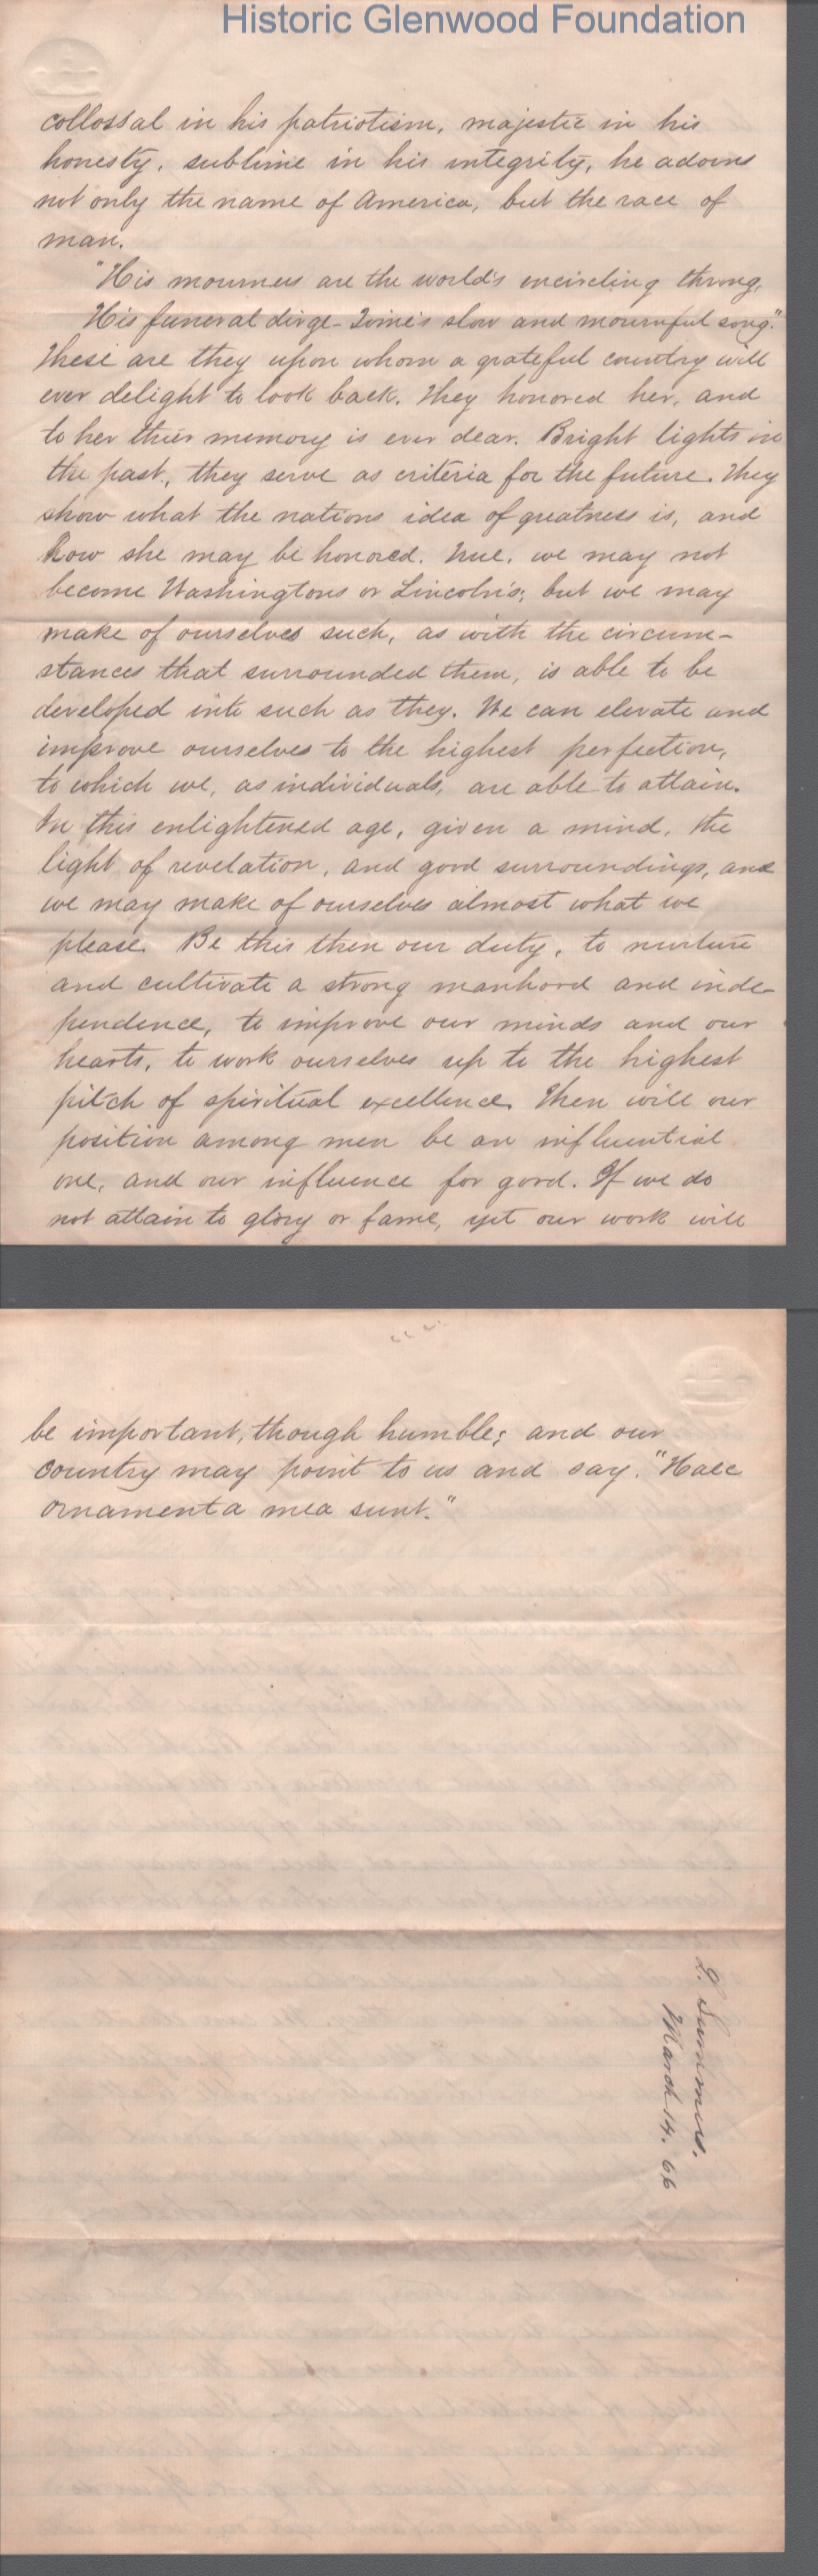 Historic Glenwood Foundation
collossal in his patriotism, majestic in his
honesty, sublime in his integrity, he adorns
not only the name of America, but the race of
man.
"His mourners are the world's encircling throng,
His funeral dirge - Time's slow and mournful song."
These are they upon whom a grateful country will
ever delight to look back. They honored her, and
to her their memory is ever dear. Bright lights in
the past, they serve as criteria for the future. They
show what the nations idea of greatness is, and
how she may be honored. True, we may not
become Washingtons or Lincoln's; but we may
make of ourselves such, as with the circum-
stances that surrounded them, is able to be
developed into such as they. We can elevate and
improve ourselves to the highest perfection,
to which we, as individuals, are able to attain.
In this enlightened age, given a mind, the
light of revelation, and good surroundings, and
we may make of ourselves almost what we
please. Be this then our duty, to nurture
and cultivate a strong manhood and inde-
pendence, to improve our minds and our
hearts, to work ourselves up to the highest
pitch of spiritual excellence. Then will our
position among men be an influential
one, and our influence for good. If we do
not attain to glory or fame, yet our work will
be important, though humble; and our
country may point to us and say. "Haec
ornamenta mea sunt."
L. Summers.
March 14. 66